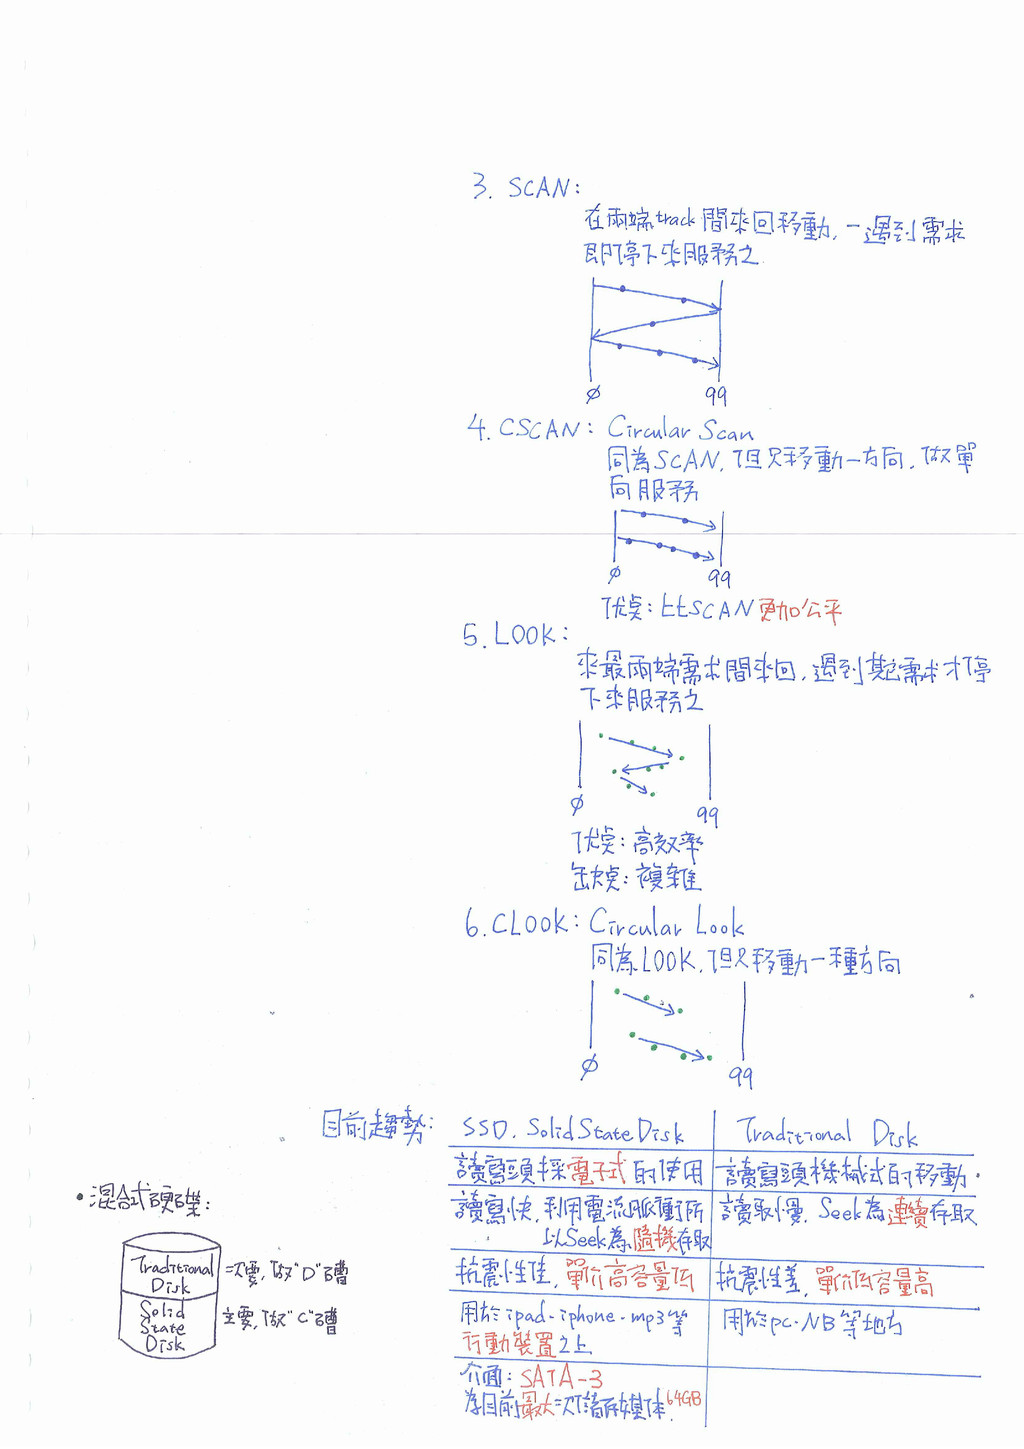 3. SCAN:
在兩端track間來回移動,一遇到需求
即停下來服務之.
φ 99
4. CSCAN: Circular Scan
同為SCAN,但只移動一方向,做單
向服務
φ 99
优点:比SCAN更加公平
5. LOOK:
來最兩端需求間來回,遇到其它需求才停
下來服務之
φ 99
优点:高效率
缺点:複雜
6. CLOOK: Circular Look
同為LOOK,但只移動一種方向
φ 99
目前趨勢:
SSD. Solid State Disk
Traditional Disk
讀寫頭採電子式的使用
讀寫頭機械式的移動.
讀寫快,利用電流脈衝所
以Seek為隨機存取
讀取慢. Seek為連續存取
抗震性佳,單价高容量低
抗震性差,單价低容量高
用於ipad.iphone.mp3等
行動裝置之上
用於pc.NB等地方
介面:SATA-3
為目前最大二次儲存媒体.64GB
•混合式硬碟:
Traditional
Disk
=次要,做"D"槽
Solid
State
Disk
主要,做"C"槽